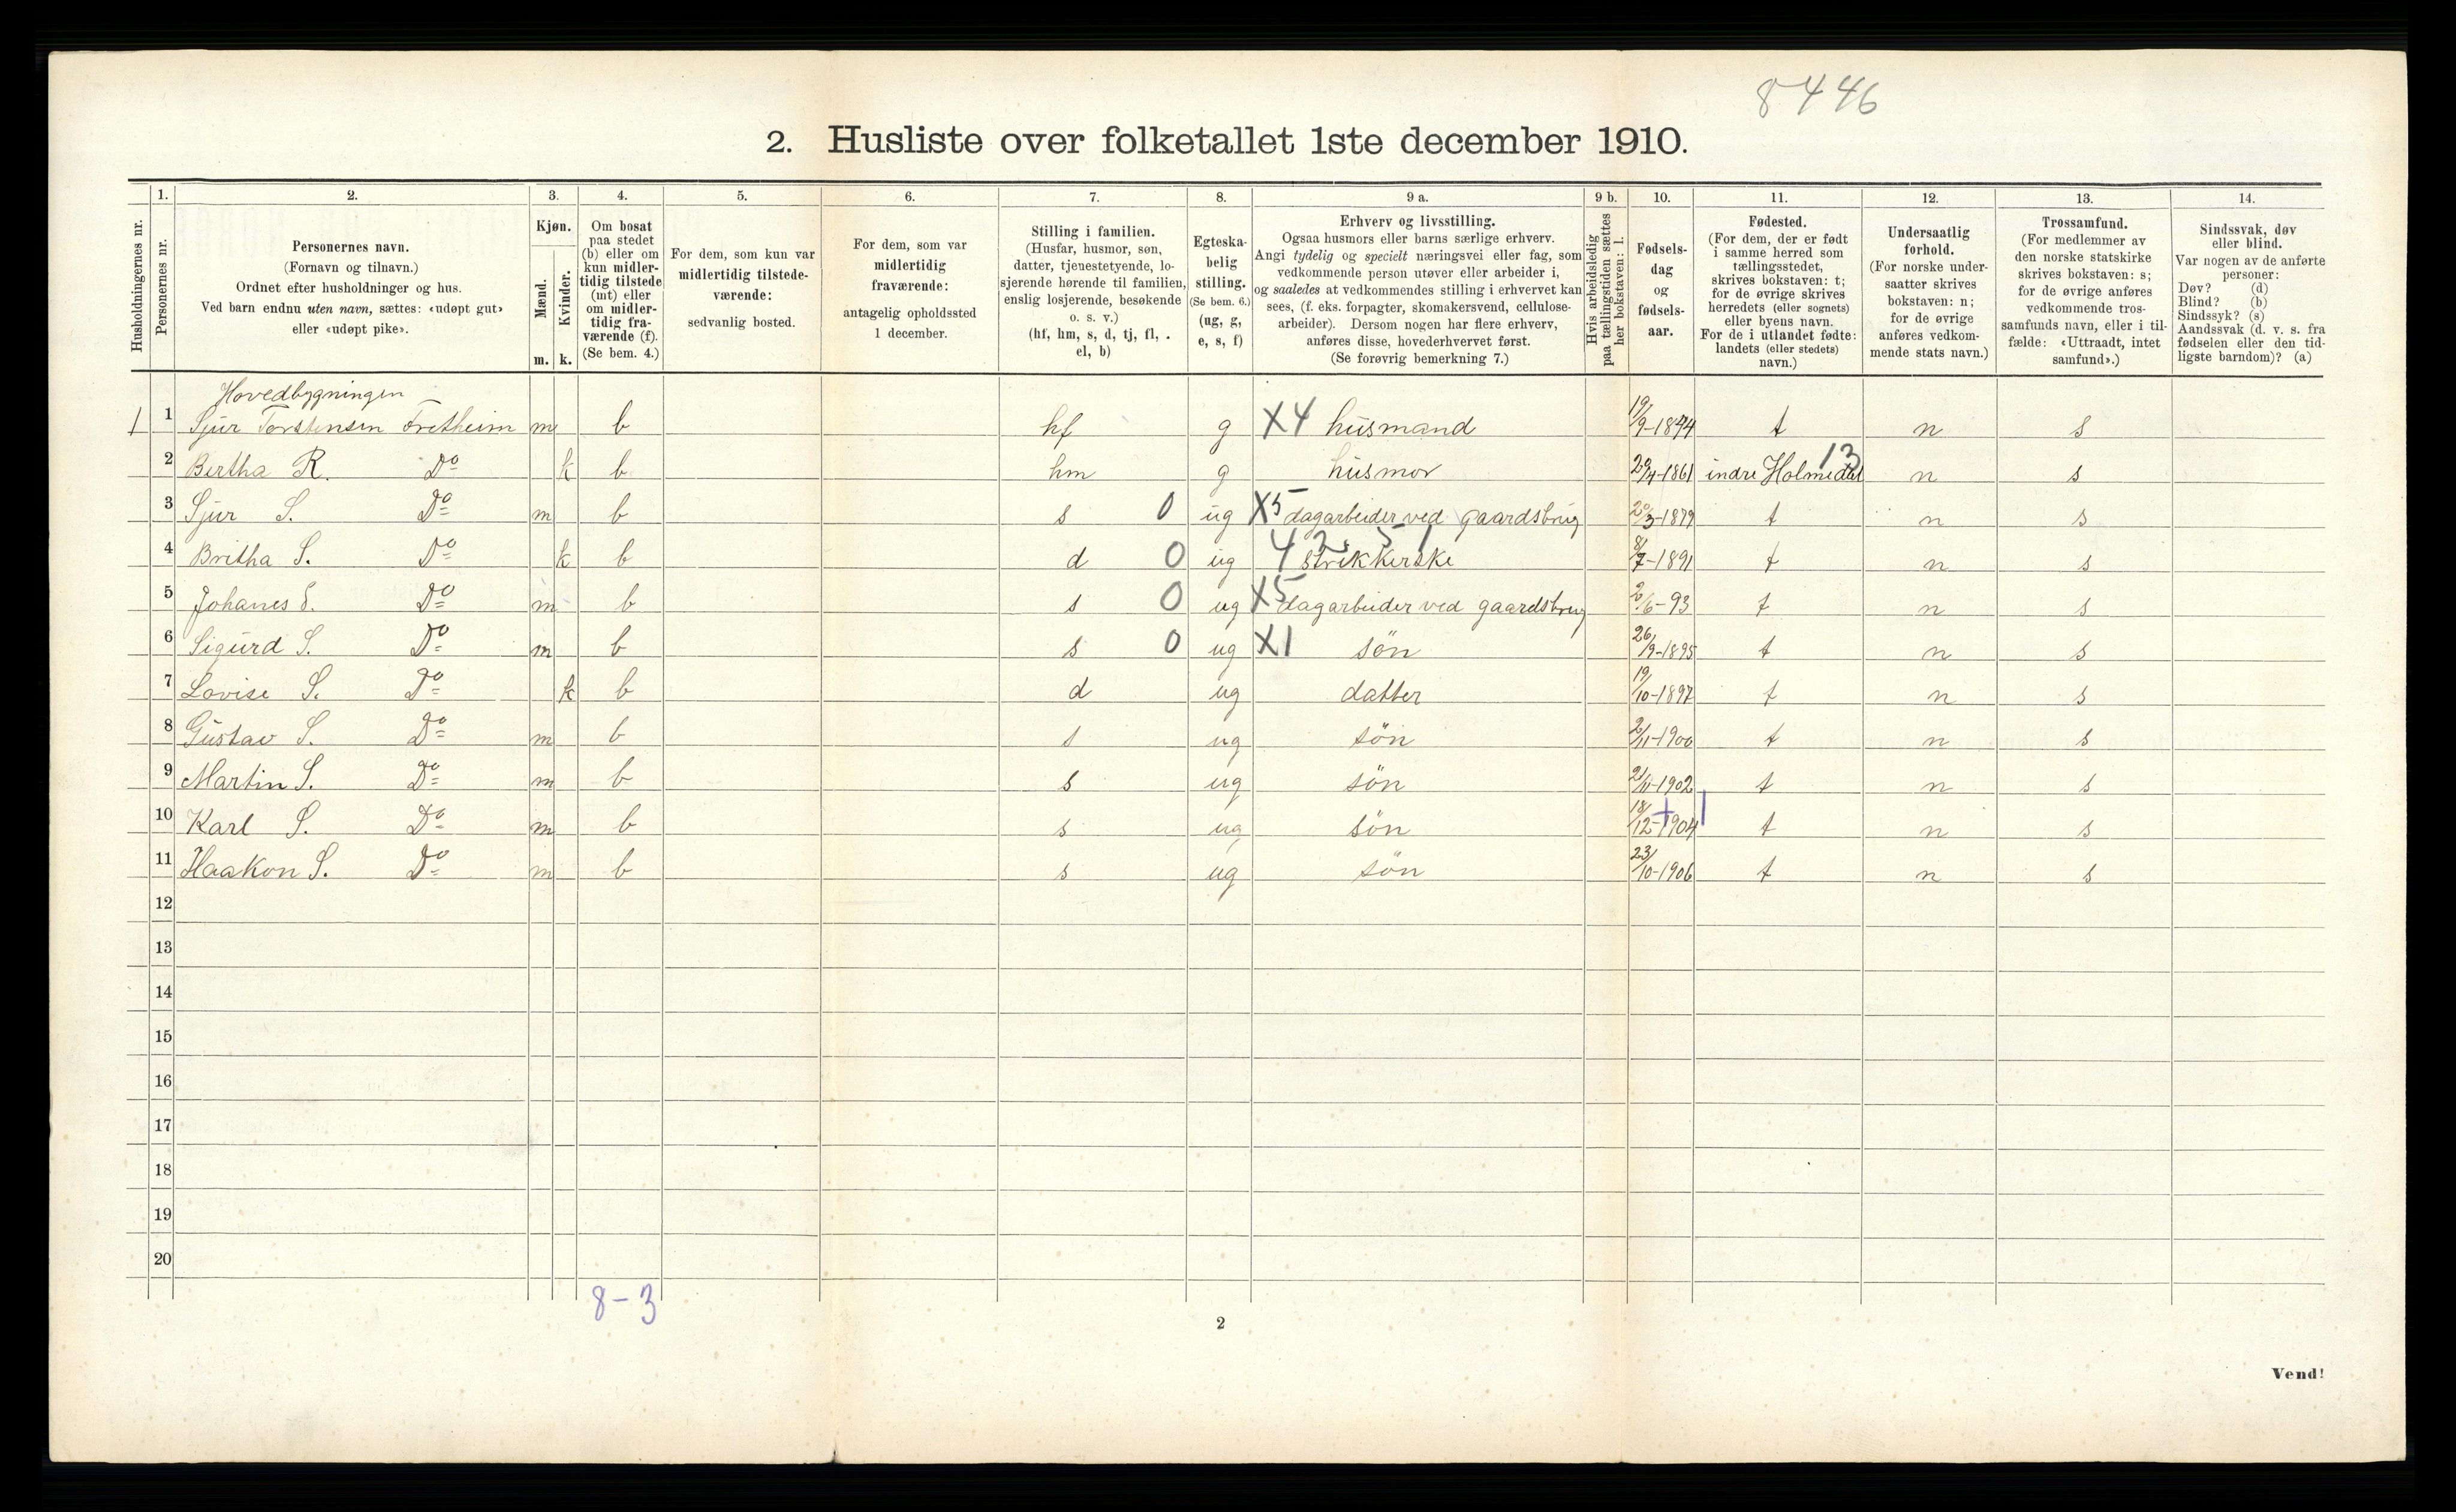 8446
2. Husliste over folketallet 1ste december 1910.
Husholdningernes nr.
1. Personernes nr.
2. Personernes navn.
(Fornavn og tilnavn.)
Ordnet efter husholdninger og hus.
Ved barn endnu uten navn, sættes: «udøpt gut»
eller «udøpt pike».
3. Kjøn.
Mænd. m.
Kvinder. k.
4. Om bosat
paa stedet
(b) eller om
kun midler-
tidig tilstede
(mt) eller
om midler-
tidig fra-
værende (f).
(Se bem. 4.)
5. For dem, som kun var
midlertidig tilstede-
værende:
sedvanlig bosted.
6. For dem, som var
midlertidig
fraværende:
antagelig opholdssted
1 december.
7. Stilling i familien.
(Husfar, husmor, søn,
datter, tjenestetyende, lo-
sjerende hørende til familien,
enslig losjerende, besøkende
o. s. v.)
(hf, hm, s, d, tj, fl,
el, b)
8. Egteska-
belig
stilling.
(Se bem. 6.)
(ug, g,
e, s, f)
9 a. Erhverv og livsstilling.
Ogsaa husmors eller barns særlige erhverv.
Angi tydelig og specielt næringsvei eller fag, som
vedkommende person utøver eller arbeider i,
og saaledes at vedkommendes stilling i erhvervet kan
sees, (f. eks. forpagter, skomakersvend, cellulose-
arbeider). Dersom nogen har flere erhverv,
anføres disse, hovederhvervet først.
(Se forøvrig bemerkning 7.)
9 b. Hvis arbeidsledig
paa tællingstiden sættes
her bokstaven: l.
10. Fødsels-
dag
og
fødsels-
aar.
11. Fødested.
(For dem, der er født
i samme herred som
tællingsstedet,
skrives bokstaven: t;
for de øvrige skrives
herredets (eller sognets)
eller byens navn.
For de i utlandet fødte:
landets (eller stedets)
navn.)
12. Undersaatlig
forhold.
(For norske under-
saatter skrives
bokstaven: n;
for de øvrige
anføres vedkom-
mende stats navn.)
13. Trossamfund.
(For medlemmer av
den norske statskirke
skrives bokstaven: s;
for de øvrige anføres
vedkommende tros-
samfunds navn, eller i til-
fælde: «Uttraadt, intet
samfund».)
14. Sindssvak, døv
eller blind.
Var nogen av de anførte
personer:
Døv? (d)
Blind? (b)
Sindssyk? (s)
Aandssvak (d. v. s. fra
fødselen eller den tid-
ligste barndom)? (a)
Hovedbygningen
1 1 Sjur Torstensen Fretheim m b hf g X4 husmand 19/9-1844 t n s
2 Bertha R. Do k b hm g husmor 20/4-1861 indre Holmedal 13 n s
3 Sjur S. Do m b s 0 ug X5 dagarbeider ved gaardsbrug 20/3-1879 t n s
4 Britha S. Do k b d 0 ug 4 2 5 1 strikkerske 8/7-1891 t n s
5 Johanes S. Do m b s 0 ug X5 dagarbeider ved gaardsbrug 2/6-93 t n s
6 Sigurd S. Do m b s 0 ug X1 søn 26/9-1895 t n s
7 Lovise S. Do k b d ug datter 19/10-1897 t n s
8 Gustav S. Do m b s ug søn 2/11-1900 t n s
9 Martin S. Do m b s ug søn 21/11-1902 t n s
10 Karl S. Do m b s ug søn 18/12-1904 t n s
11 Haakon S. Do m b s ug søn 23/10-1906 t n s
12
13
14
15
16
17
18
19
20
8-3
2
Vend!